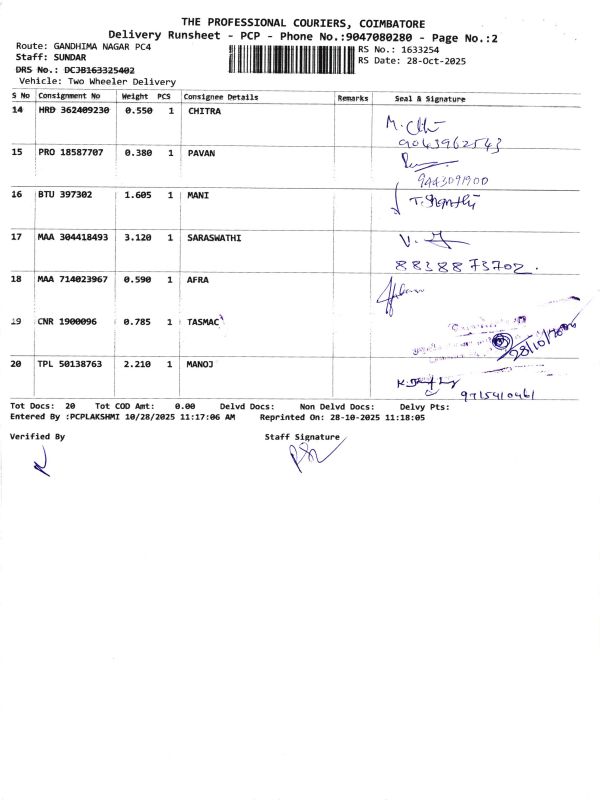 THE PROFESSIONAL COURIERS, COIMBATORE
Delivery Runsheet - PCP - Phone No.:9047080280 - Page No.:2
Route: GANDHIMA NAGAR PC4 RS No.: 1633254
Staff: SUNDAR RS Date: 28-Oct-2025
DRS No.: DCJB163325402
Vehicle: Two Wheeler Delivery
S No Consignment No Weight PCS Consignee Details Remarks Seal & Signature
14 HRD 362409230 0.550 1 CHITRA
9043962543
15 PRO 18587707 0.380 1 PAVAN
9443091900
16 BTU 397302 1.605 1 MANI
17 MAA 304418493 3.120 1 SARASWATHI
8838873702.
18 MAA 714023967 0.590 1 AFRA
19 CNR 1900096 0.785 1 TASMAC
20 TPL 50138763 2.210 1 MANOJ
9715410461
Tot Docs: 20 Tot COD Amt: 0.00 Delvd Docs: Non Delvd Docs: Delvy Pts:
Entered By :PCPLAKSHMI 10/28/2025 11:17:06 AM Reprinted On: 28-10-2025 11:18:05
Verified By Staff Signature